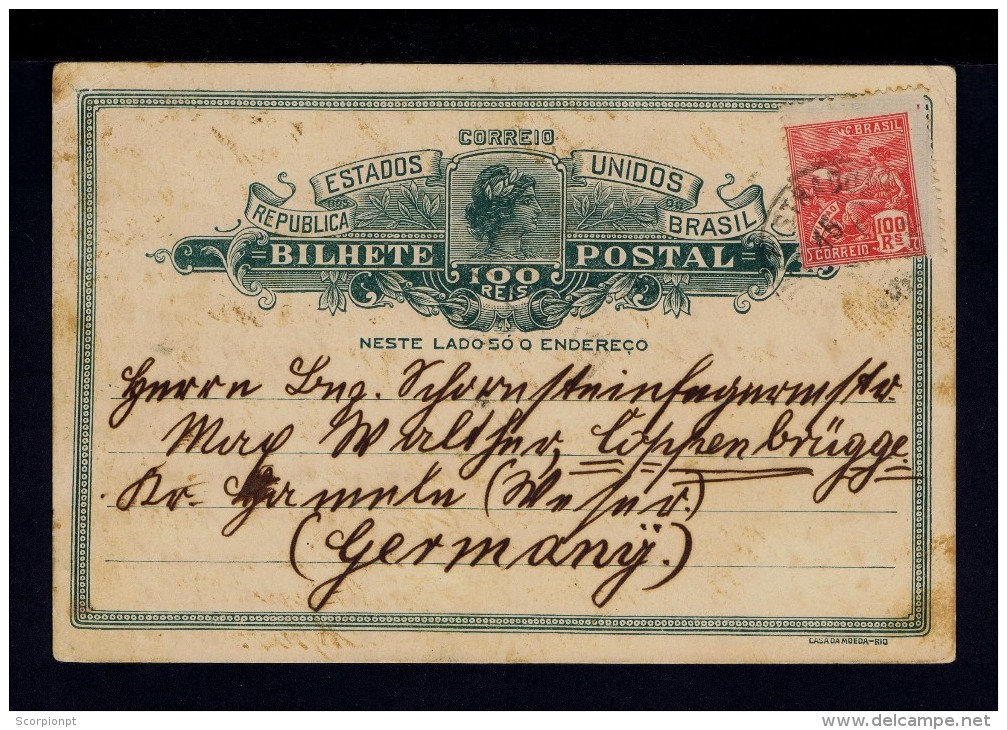 CORREIO
ESTADOS UNIDOS
REPUBLICA BRASIL
BILHETE POSTAL
100
REIS
NESTE LADO SÓ O ENDEREÇO
BRASIL
100
RS
CORREIO
Herrn Bez. Schornsteinfegermstr.
Max Walther, Coppenbrügge
Kr. Hameln (Weser.)
(Germany.)
CASA DA MOEDA-RIO
Scorpionpt
www.delcampe.net